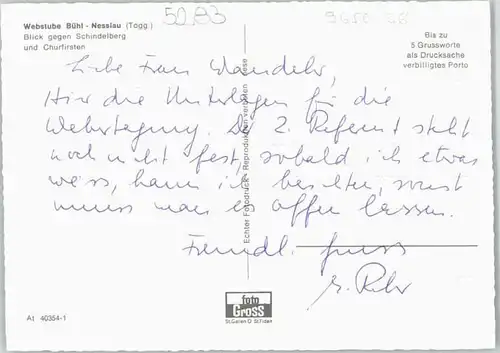 Webstube Bühl - Nesslau (Togg.)
Blick gegen Schindelberg
und Churfirsten
5093
9650
Bis zu
5 Grussworte
als Drucksache
verbilligtes Porto
Liebe Frau
Hier die Unterlagen für die
Webertagung. Der 2. Referent steht
noch nicht fest, sobald ich etwas
weiss, kann ich berichten, sonst
muss man es offen lassen.
Freundl. Gruss
Echter Fotodruck - Reproduktion verboten
foto
GROSS
St.Gallen O' St.Fiden
At 40354-1